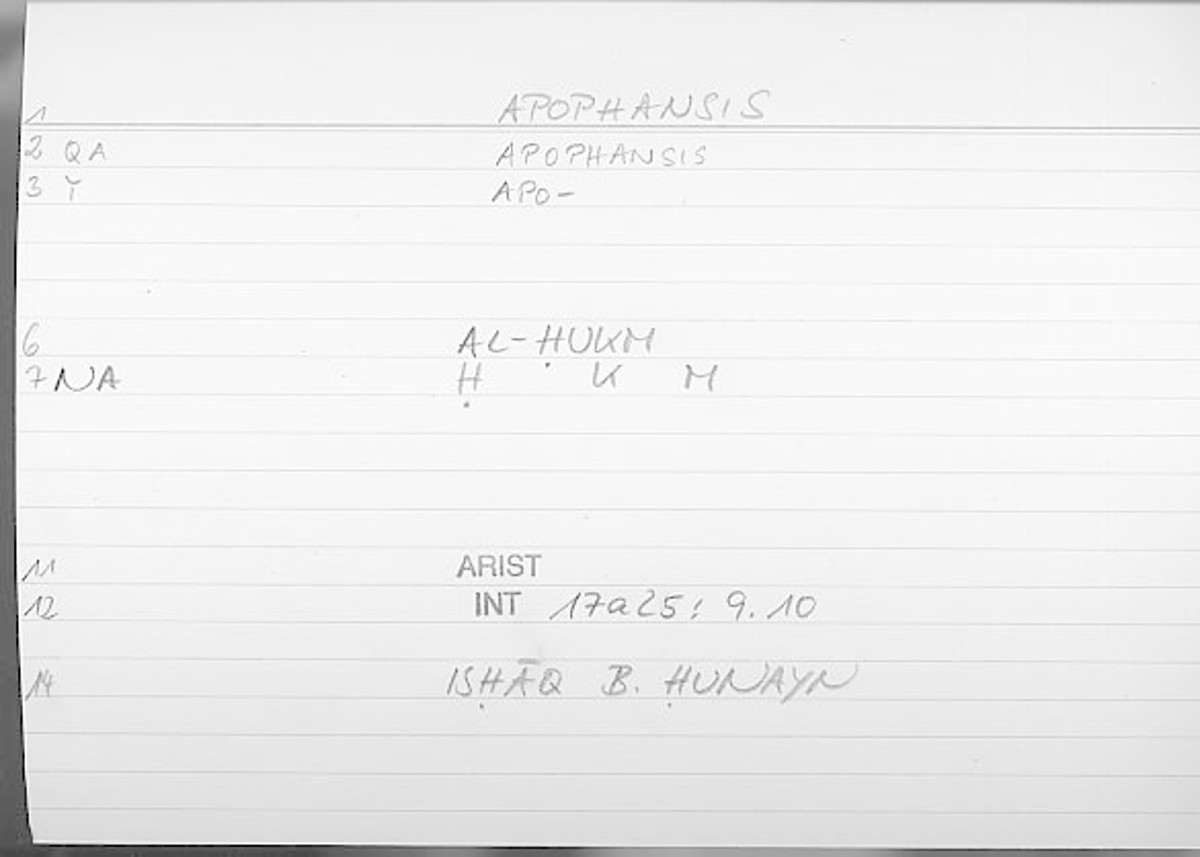 1 APOPHANSIS
2 QA APOPHANSIS
3 Y APO-
6 AL-ḤUKM
7 NA Ḥ K M
11 ARIST
12 INT 17a25; 9.10
14 ISḤĀQ B. ḤUNAYN